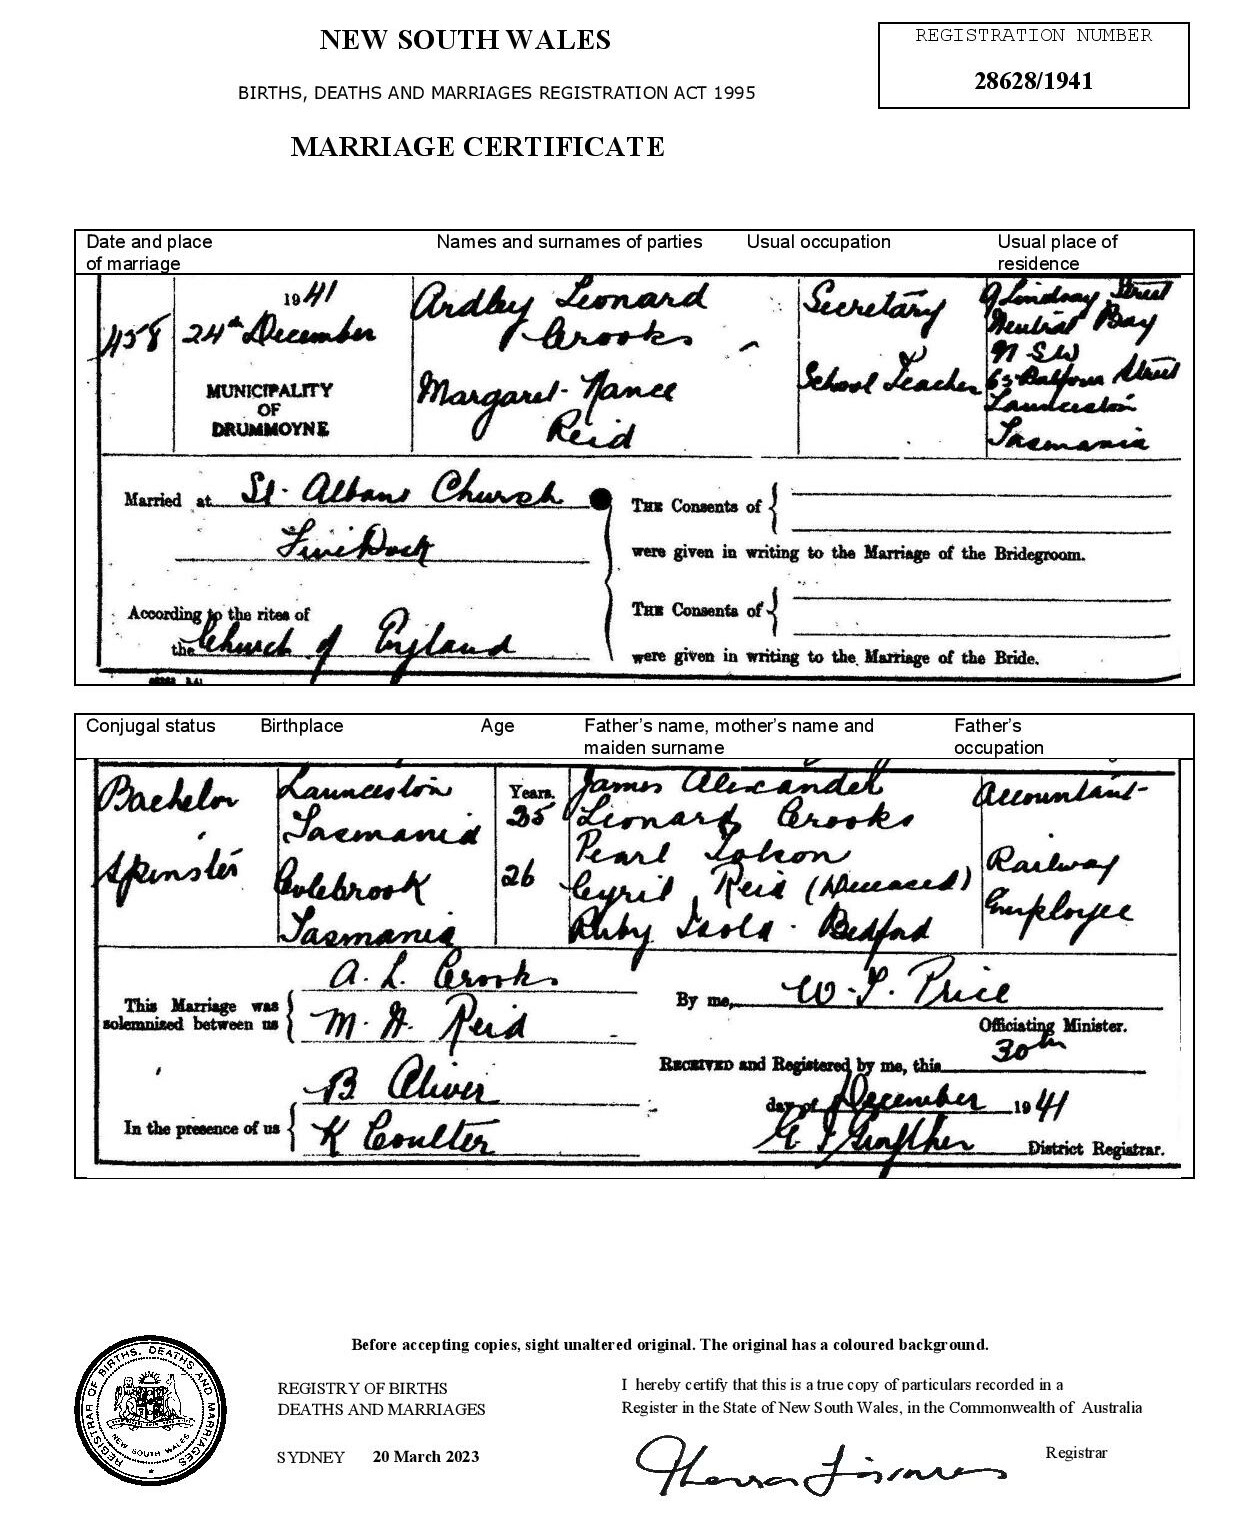 NEW SOUTH WALES
REGISTRATION NUMBER
28628/1941
BIRTHS, DEATHS AND MARRIAGES REGISTRATION ACT 1995
MARRIAGE CERTIFICATE
Date and place of marriage
Names and surnames of parties
Usual occupation
Usual place of residence
458
1941
24th December
MUNICIPALITY
OF
DRUMMOYNE
Ardley Leonard
Crooks
Margaret Nance
Reid
Secretary
School Teacher
9 Lindsay Street
Neutral Bay
N S W
63 Balfour Street
Launceston
Tasmania
Married at St. Albans Church
Five Dock
According to the rites of
the Church of England
THE Consents of
were given in writing to the Marriage of the Bridegroom.
THE Consents of
were given in writing to the Marriage of the Bride.
Conjugal status
Birthplace
Age
Father's name, mother's name and
maiden surname
Father's
occupation
Bachelor
Spinster
Launceston
Tasmania
Colebrook
Tasmania
Years.
25
26
James Alexander
Leonard Crooks
Pearl
Cyril Reid (Deceased)
Ruby Isola Bedford
Accountant
Railway
Employee
This Marriage was
solemnized between us
A. L. Crooks
M. N. Reid
In the presence of us
B Oliver
K Coulter
By me, Price
Officiating Minister.
RECEIVED and Registered by me, this 30th
day of December 1941
District Registrar.
Before accepting copies, sight unaltered original. The original has a coloured background.
REGISTRAR OF BIRTHS, DEATHS AND MARRIAGES
NEW SOUTH WALES
REGISTRY OF BIRTHS
DEATHS AND MARRIAGES
SYDNEY 20 March 2023
I hereby certify that this is a true copy of particulars recorded in a
Register in the State of New South Wales, in the Commonwealth of Australia
Registrar